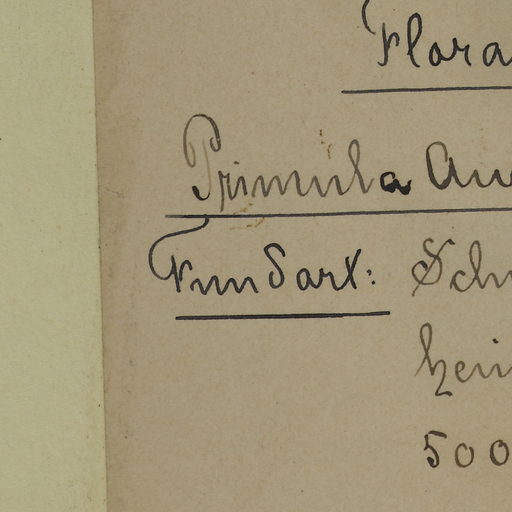 Flora
Primula Au
Fundort: Sch
hein
500